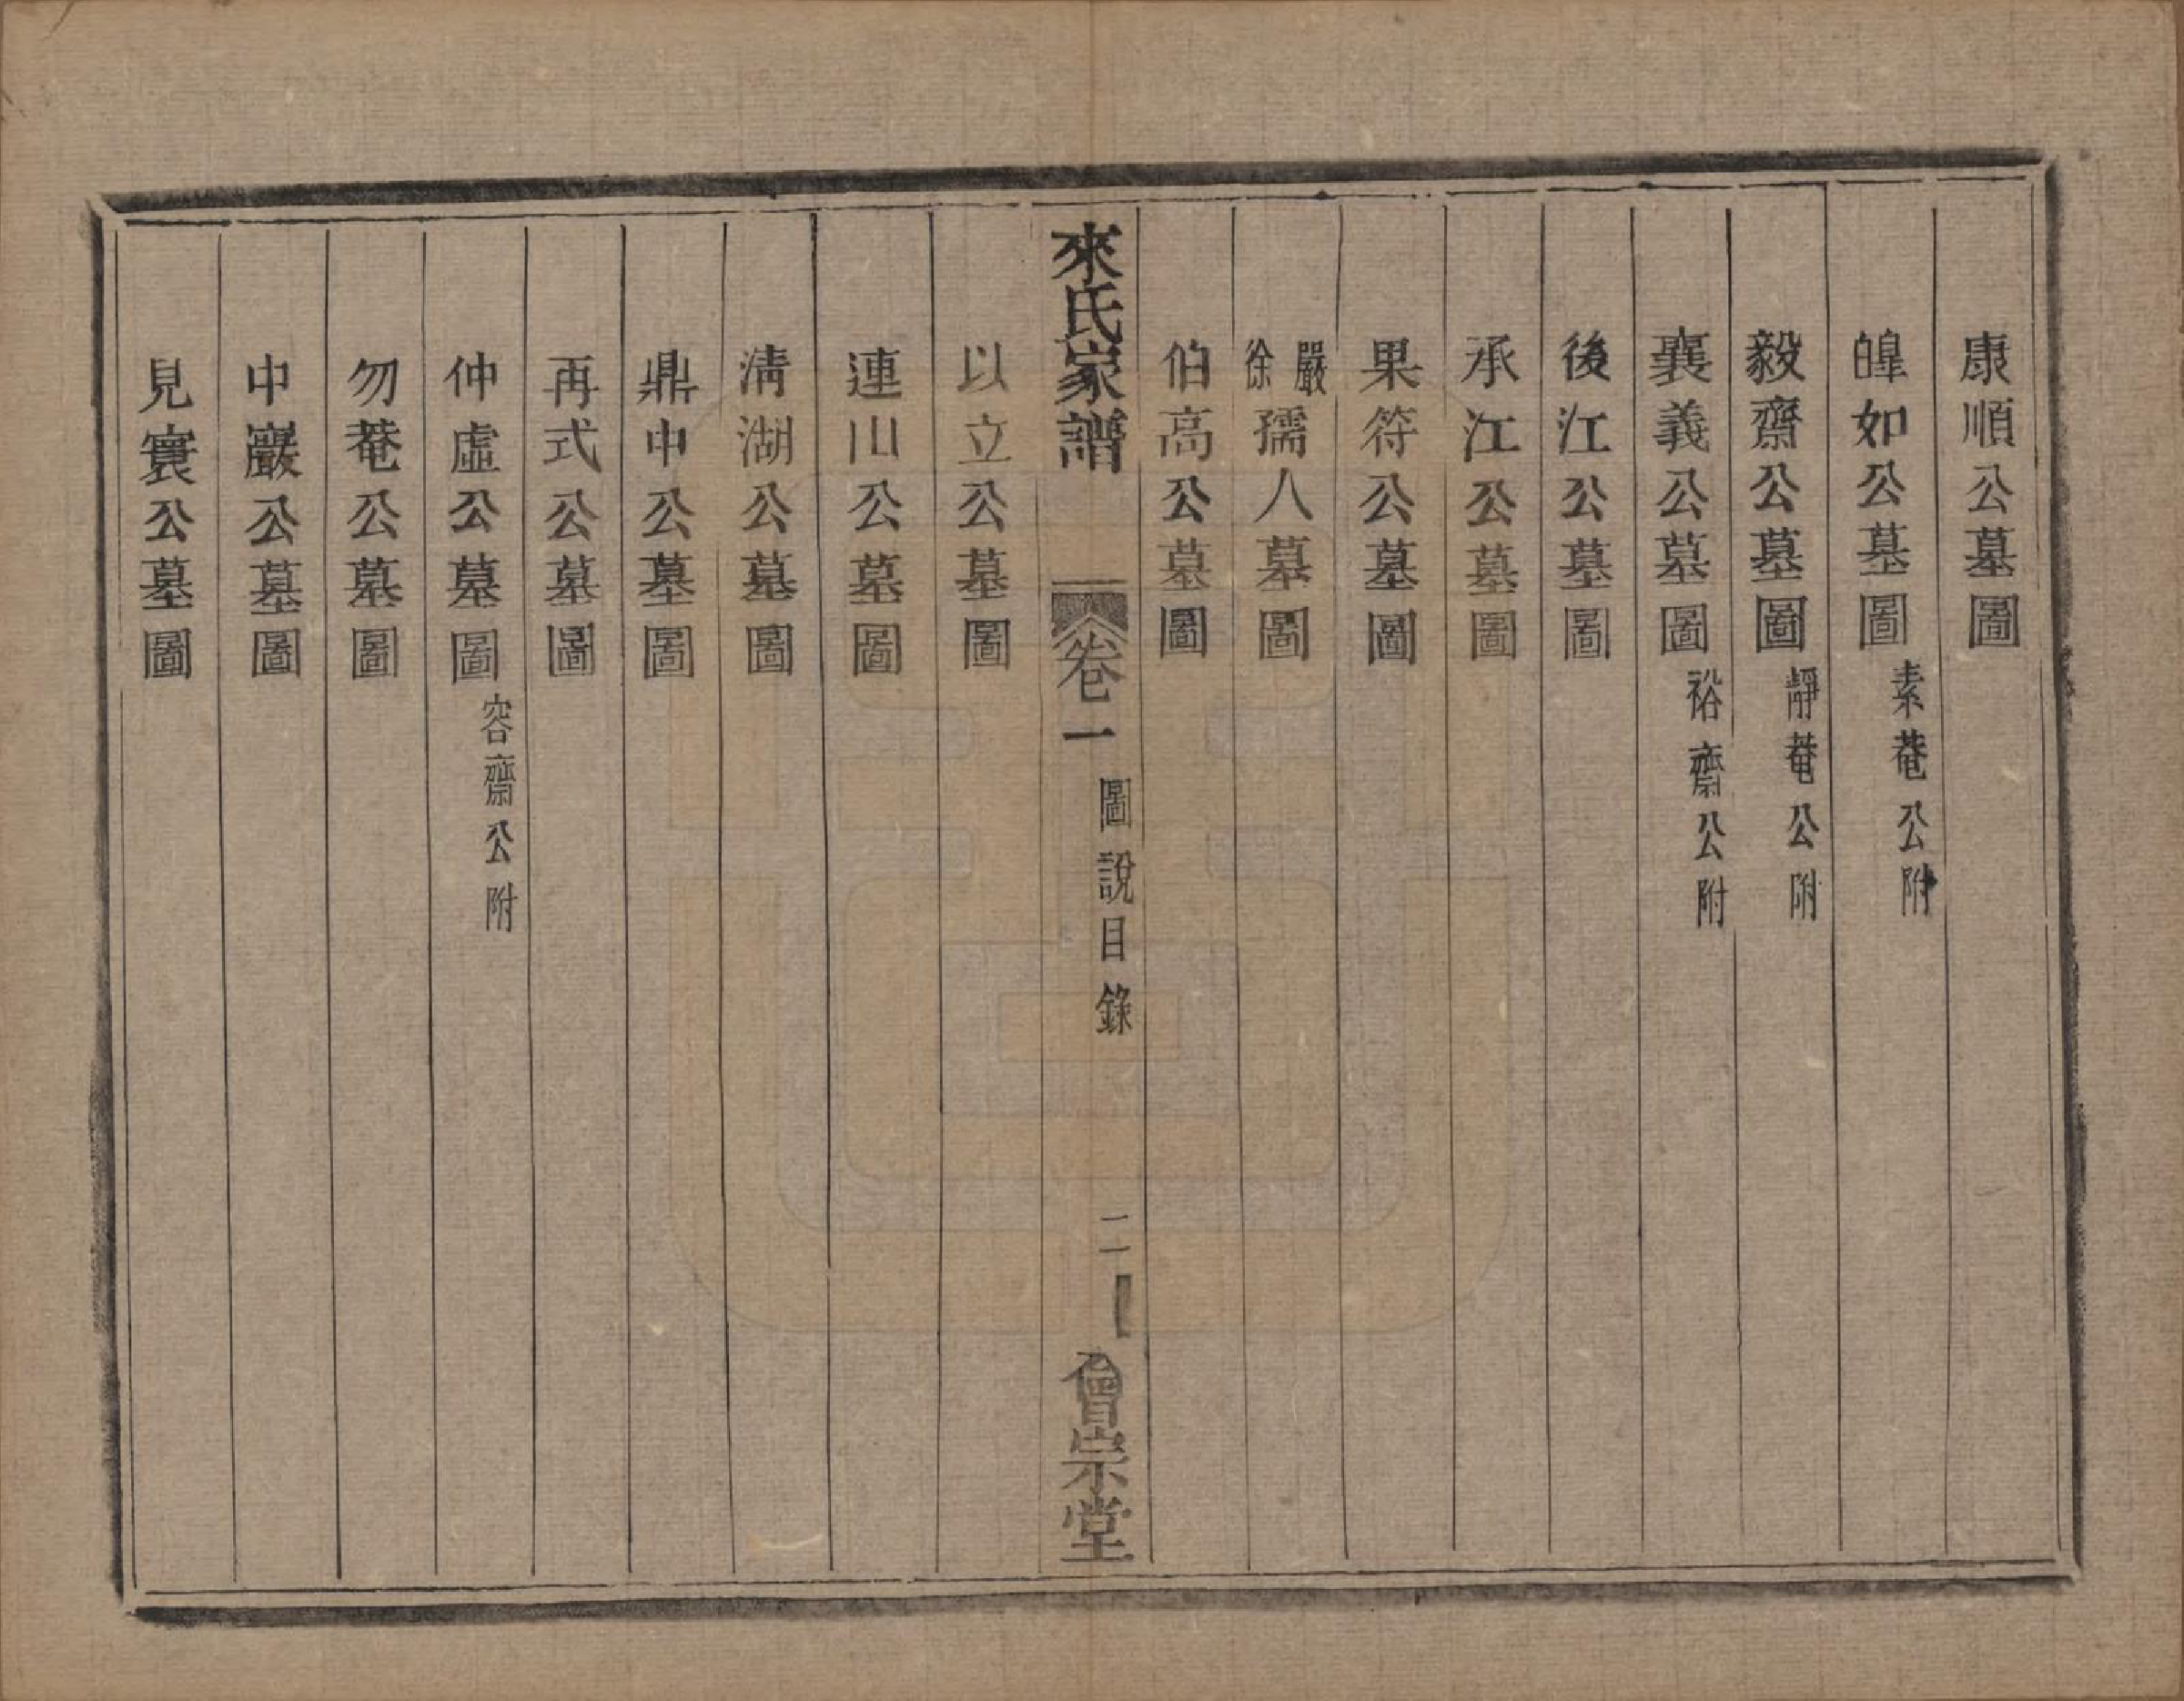 康順公墓圖
皥如公墓圖 素菴公附
毅齋公墓圖 靜菴公附
襄義公墓圖 裕齋公附
後江公墓圖
承江公墓圖
果符公墓圖
嚴徐孺人墓圖
伯高公墓圖
來氏家譜 卷一 圖說目錄 二 會宗堂
以立公墓圖
連山公墓圖
淸湖公墓圖
鼎中公墓圖
再式公墓圖
仲虛公墓圖 容齋公附
勿菴公墓圖
中巖公墓圖
見寰公墓圖